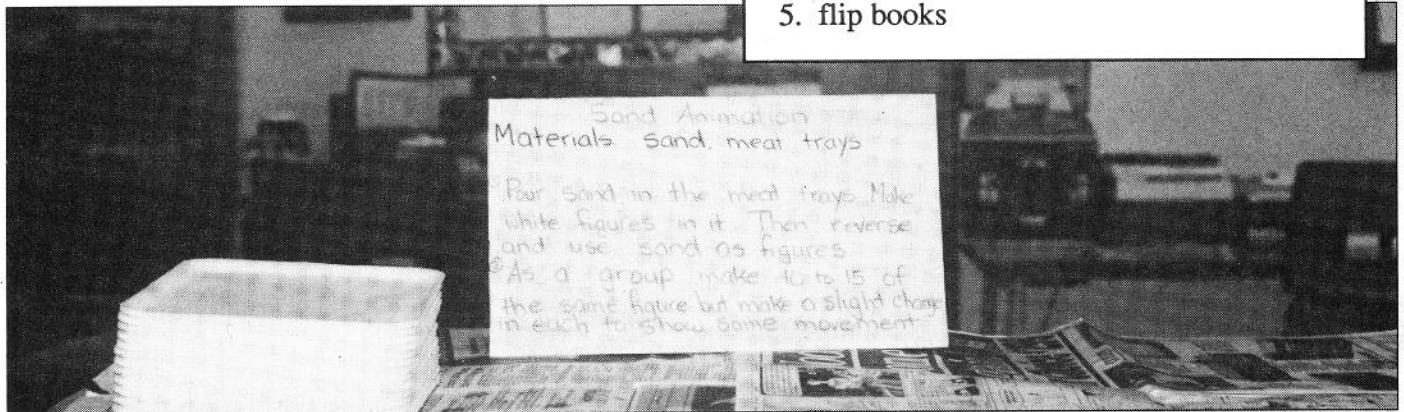 5. flip books
Sand Animation
Materials sand, meat trays
Pour sand in the meat trays Make
white figures in it Then reverse
and use sand as figures
② As a group make 10 to 15 of
the same figure but make a slight change
in each to show some movement